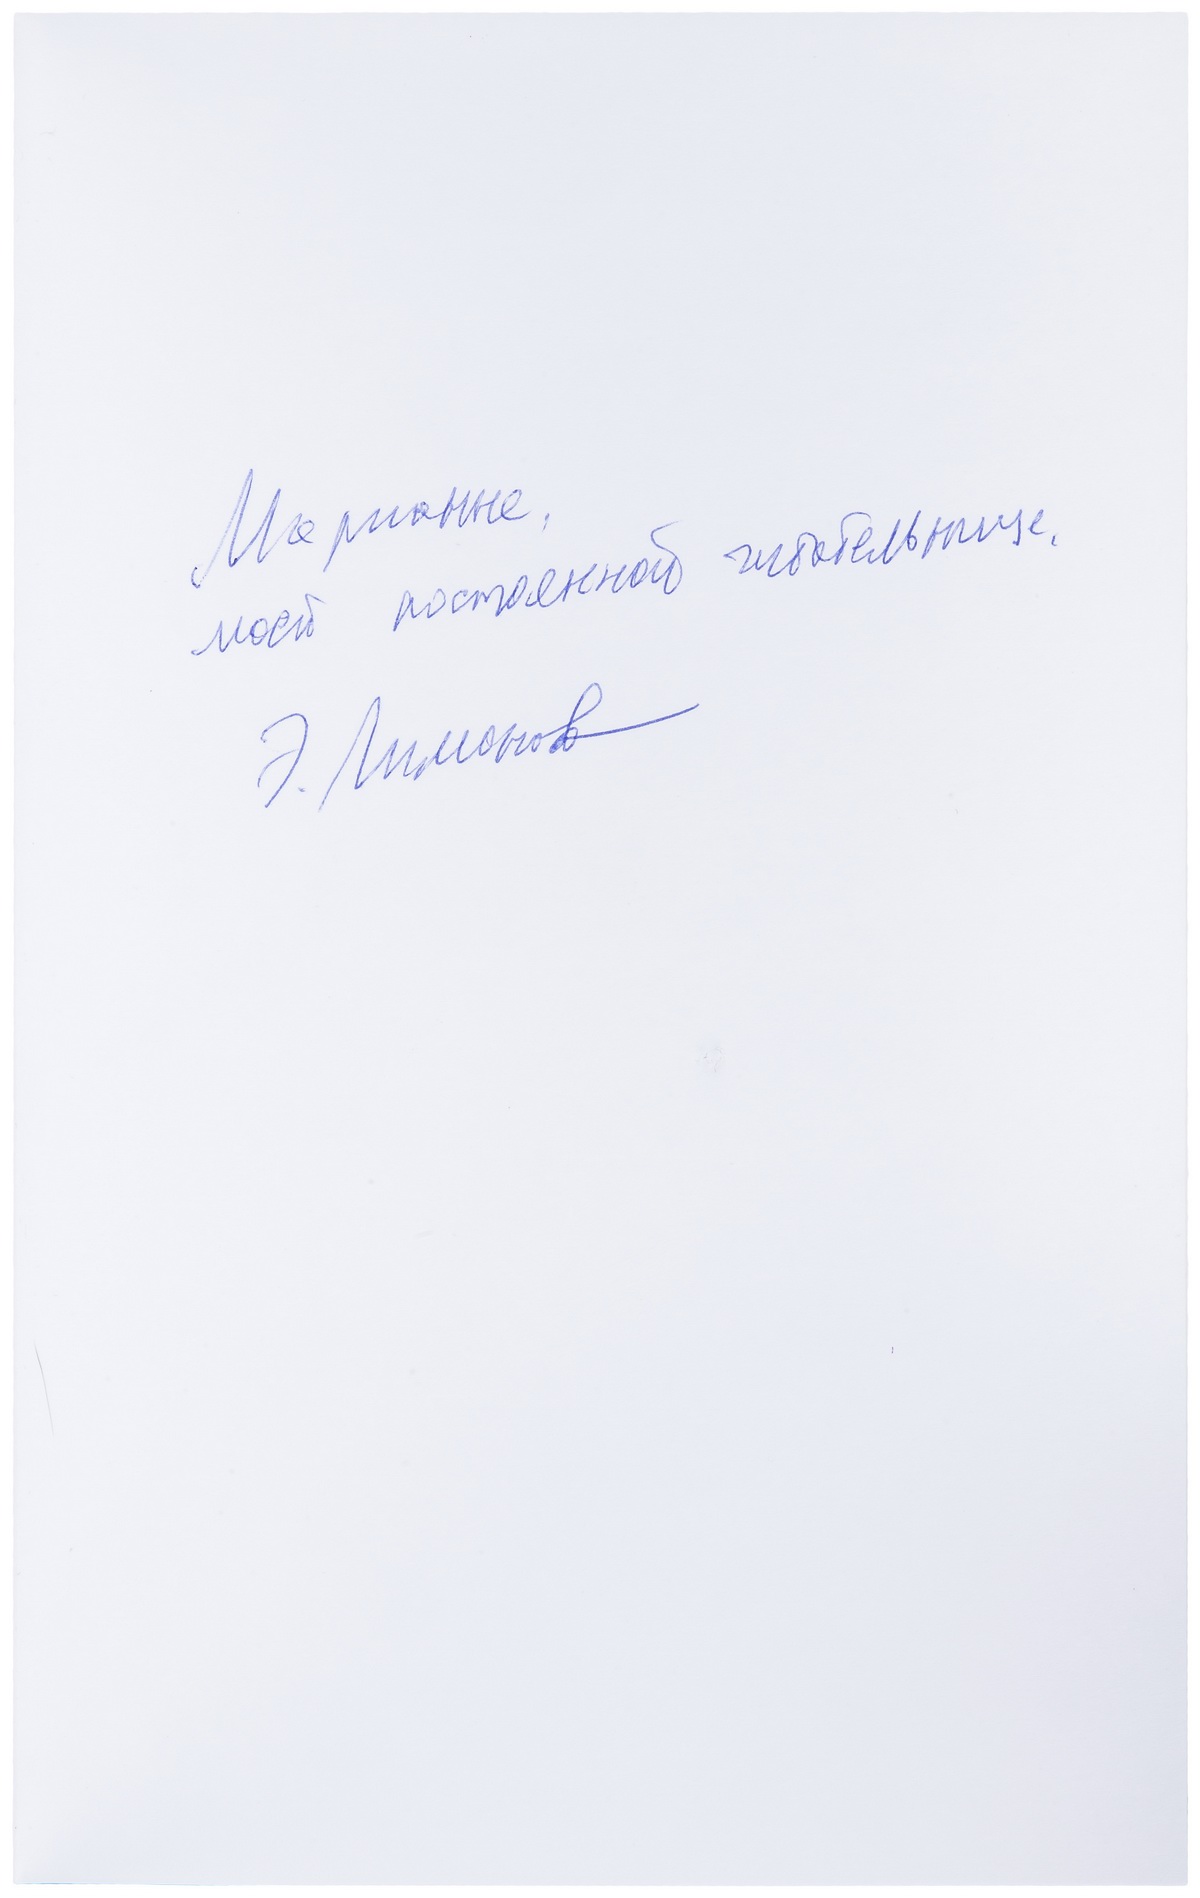 Марианне,
моей постоянной читательнице.
Э. Лимонов